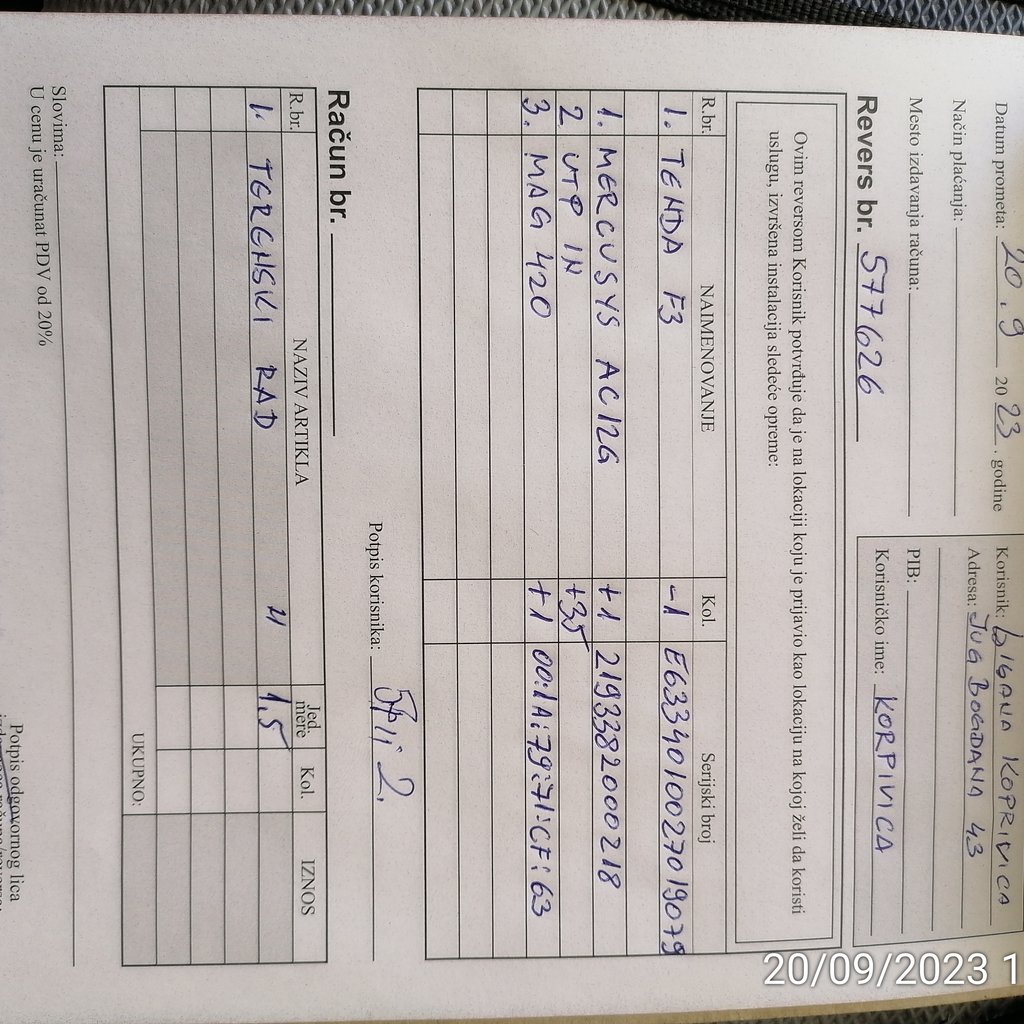 Datum prometa: 20.9 2023. godine
Način plaćanja:
Mesto izdavanja računa:
Korisnik: KOPRIVICA
Adresa: JUG BOGDANA 43
PIB:
Korisničko ime: KORPIVICA
Revers br. 577626
Ovim reversom Korisnik potvrđuje da je na lokaciji koju je prijavio kao lokaciju na kojoj želi da koristi
uslugu, izvršena instalacija sledeće opreme:
R.br. NAIMENOVANJE Kol. Serijski broj
1. TENDA F3 -1 E6334010027019079
1. MERCUSYS AC12G +1 2193382000218
2 UTP IN +35
3. MAG 420 +1 00:1A:79:71:CF:63
Potpis korisnika:
Račun br.
R.br. NAZIV ARTIKLA Jed. mere Kol. IZNOS
1. TERENSKI RAD 1,5
UKUPNO:
Slovima:
U cenu je uračunat PDV od 20%
Potpis odgovornog lica
20/09/2023 1